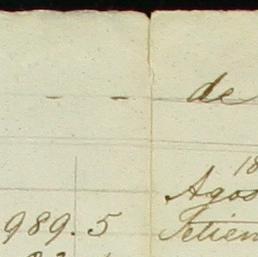 - - de
18
Agos
989.5 Setiem